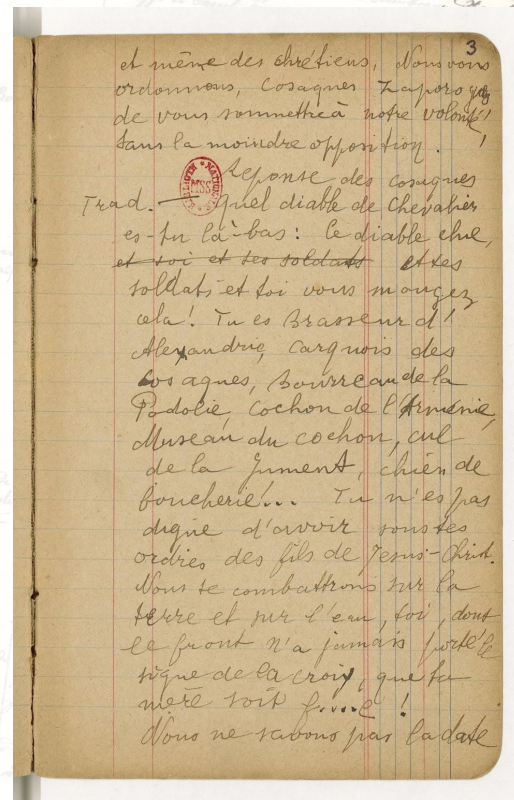 3
et même des chrétiens. Nous vous
ordonnons, cosagnes Zaporogues
de vous sommettre à notre volonté!
sans la moindre opposition.
Reponse des cosagnes
Trad. — Quel diable de Chevalier
es-tu là-bas: le diable chie,
et toi et tes soldats et tes
soldats et toi vous mangez
cela! Tu es Brasseur d'
Alexandrie, Carquois des
Cosagnes, Bourreau de la
Podolie, Cochon de l'Arménie,
Museau du cochon, cul
de la Jument, chien de
boucherie!... Tu n'es pas
digne d'avoir sous tes
ordres des fils de Jesus-Christ.
Nous te combattrons sur la
terre et sur l'eau, toi, dont
le front n'a jamais porté le
signe de la croix, que ta
mère soit f....e !
Nous ne savons pas la date
MSS